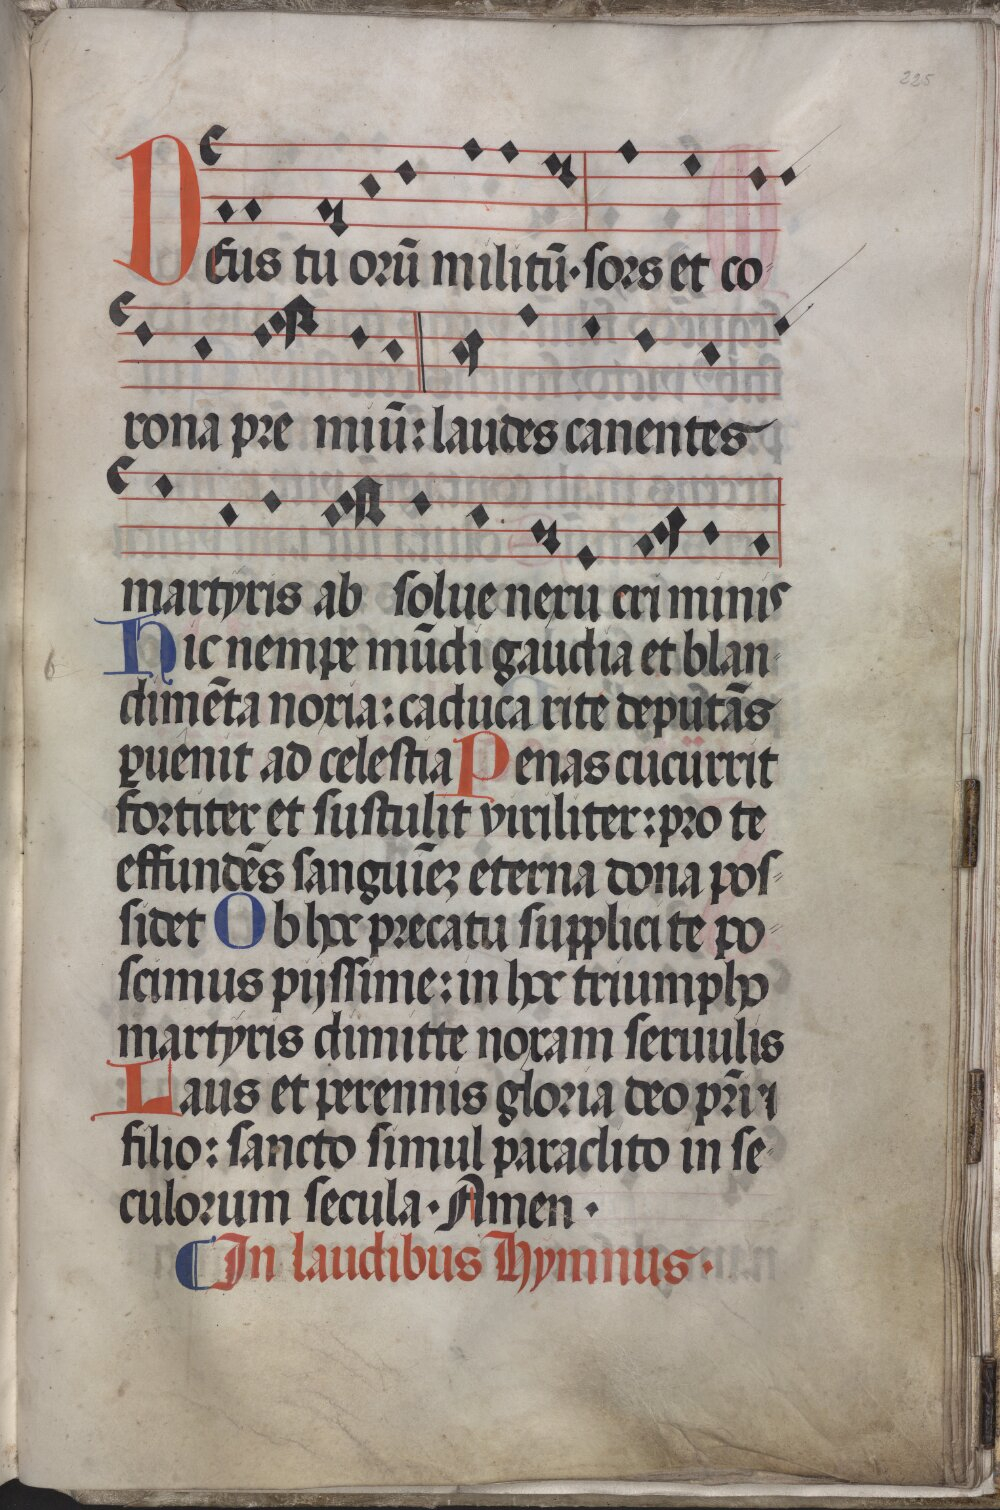 225
DEus tu orũ militũ·sors et co-
rona pre miũ: laudes canentes
martyris ab solue nexu criminis
Hic nempe mũdi gaudia et blan-
dimẽta noxia: caduca rite deputãs
ꝑuenit ad celestia Penas cucurrit
fortiter et sustulit viriliter: pro te
effundẽs sanguinẽ eterna dona pos-
sidet Ob hoc precatu supplici te po-
scimus pijssime: in hoc triumpho
martyris dimitte noxam seruulis
Laus et perennis gloria deo pr̃i ⁊
filio: sancto simul paraclito in se-
culorum secula· Amen·
¶ In laudibus Hymnus·